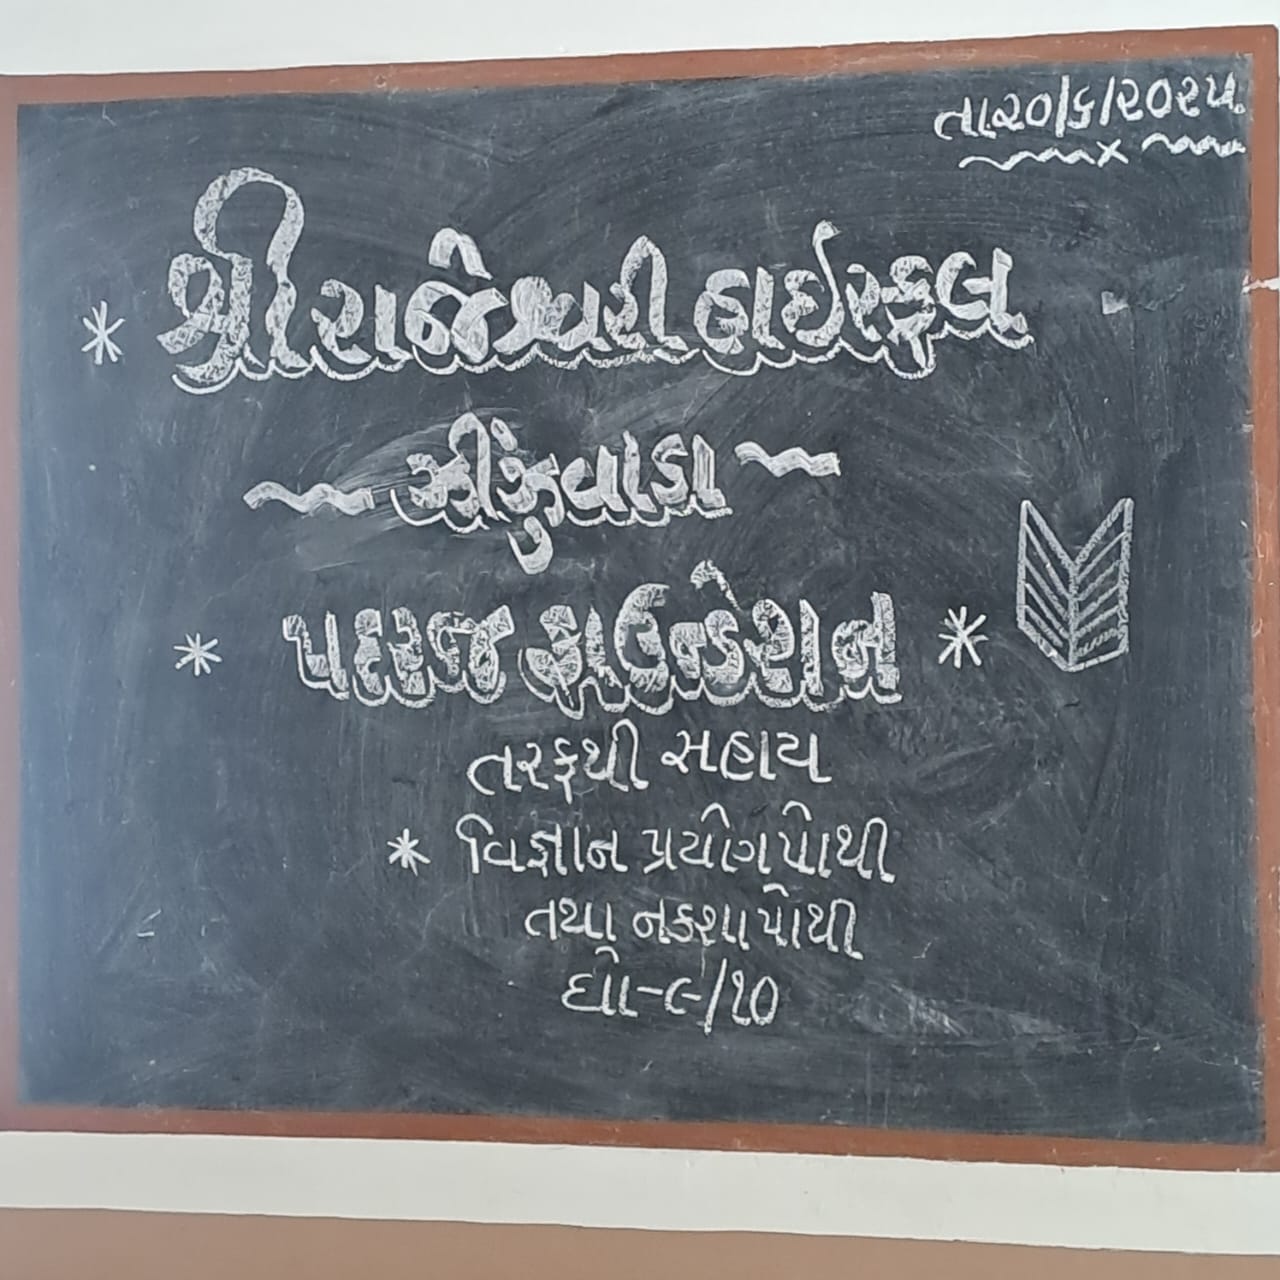 તા૨૦/૬/૨૦૨૫.
* શ્રી રાજેશ્વરી હાઈસ્કૂલ
ઝીંઝુવાડા
* પદરજ ફાઉન્ડેશન *
તરફથી સહાય
* વિજ્ઞાન પ્રયોગપોથી
તથા નકશાપોથી
ધો-૯/૧૦